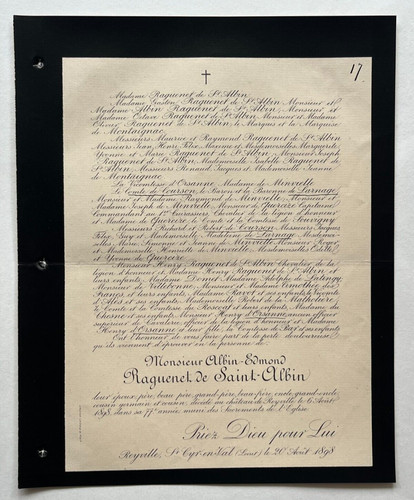 17
Madame Raguenet de St Albin
Madame Gaston Raguenet de St Albin, Monsieur et
Madame Albin Raguenet de St Albin, Monsieur et
Madame Octave Raguenet de St Albin, Monsieur et Madame
Olivier Raguenet de St Albin, le Marquis et la Marquise
de Montaignac
Messieurs Maurice et Raymond Raguenet de St Albin
Messieurs Jean, Henri, Mesdemoiselles Marguerite,
Yvonne et Marie Raguenet de St Albin, Monsieur Joseph
Raguenet de St Albin, Mademoiselle Raguenet de St
Albin, Messieurs Renaud, Jacques et Mademoiselle Jeanne
de Montaignac
La Vicomtesse d'Orsanne, Madame de Minvielle
Le Comte de Courson, le Baron et la Baronne de Larnage
Monsieur et Madame Raymond de Minvielle, Monsieur et
Madame Joseph de Minvielle, Monsieur de Capitaine
Commandant au 1er Cuirassiers, Chevalier de la légion d'honneur
et Madame de le Comte et la Comtesse de
Messieurs Richard et Robert de Courson, Messieurs Jacques
Guy et Mademoiselle Madeleine de Larnage, Mesdemoi-
selles Marie, Simonne et Jeanne de Minvielle, Monsieur Roger
et Mademoiselle Henriette de Minvielle, Mesdemoiselles Odile
et Yvonne de
Monsieur Henry Raguenet de St Albin, Chevalier de la
légion d'honneur et Madame Henry Raguenet de St Albin et
leurs enfants, Madame Adolphe de
Monsieur de Villebonne, Monsieur et Madame Timothée des
Francs et leurs enfants, Madame et ses enfants, le Comte
d'Alès et ses enfants, Mademoiselle Robert de la Matholière,
le Comte et la Comtesse du Roscoät et leurs enfants, Madame de
et ses enfants, Monsieur Henry d'Orsanne, ancien officier
supérieur de Cavalerie, officier de la légion d'honneur et Madame
Henry d'Orsanne et leur fille, la Comtesse de et ses enfants
Ont l'honneur de vous faire part de la perte douloureuse
qu'ils viennent d'éprouver en la personne de
Monsieur Albin-Edmond
Raguenet de Saint-Albin
leur époux, père, beau-père, grand-père, beau-frère, oncle, grand-oncle,
cousin germain et cousin, décédé au château de Reyville, le 6 Août
1898, dans sa 77e année, muni des Sacrements de l'Eglise.
Priez Dieu pour Lui
Reyville, St Cyr-en-Val (Loiret) le 20 Août 1898